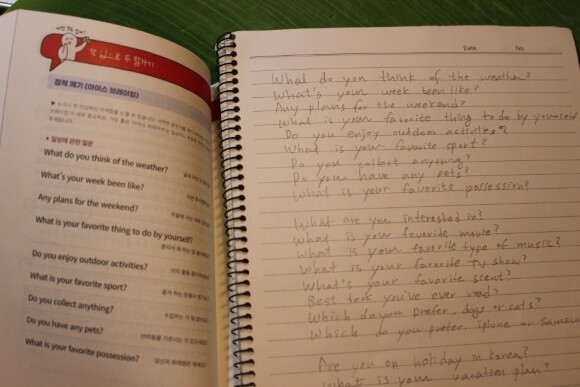 한 입으로 두 말하기
침묵 깨기 (아이스 브레이킹)
일상에 관한 질문
What do you think of the weather?
What's your week been like?
Any plans for the weekend?
What is your favorite thing to do by yourself?
Do you enjoy outdoor activities?
What is your favorite sport?
Do you collect anything?
Do you have any pets?
What is your favorite possession?
Date. No.
What do you think of the weather?
What's your week been like?
Any plans for the weekend?
What is your favorite thing to do by yourself
Do you enjoy outdoor activities?
What is your favorite sport?
Do you collect anything?
Do you have any pets?
What is your favorite possession?
What are you interested in?
What is your favorite movie?
What is your favorite type of music?
What is your favorite TV show?
What's your favorite scent?
Best book you've ever read?
Which do you prefer, dogs or cats?
Which do you prefer, iphone or Samsu
Are you on holiday in korea?
What is your vacation plan?